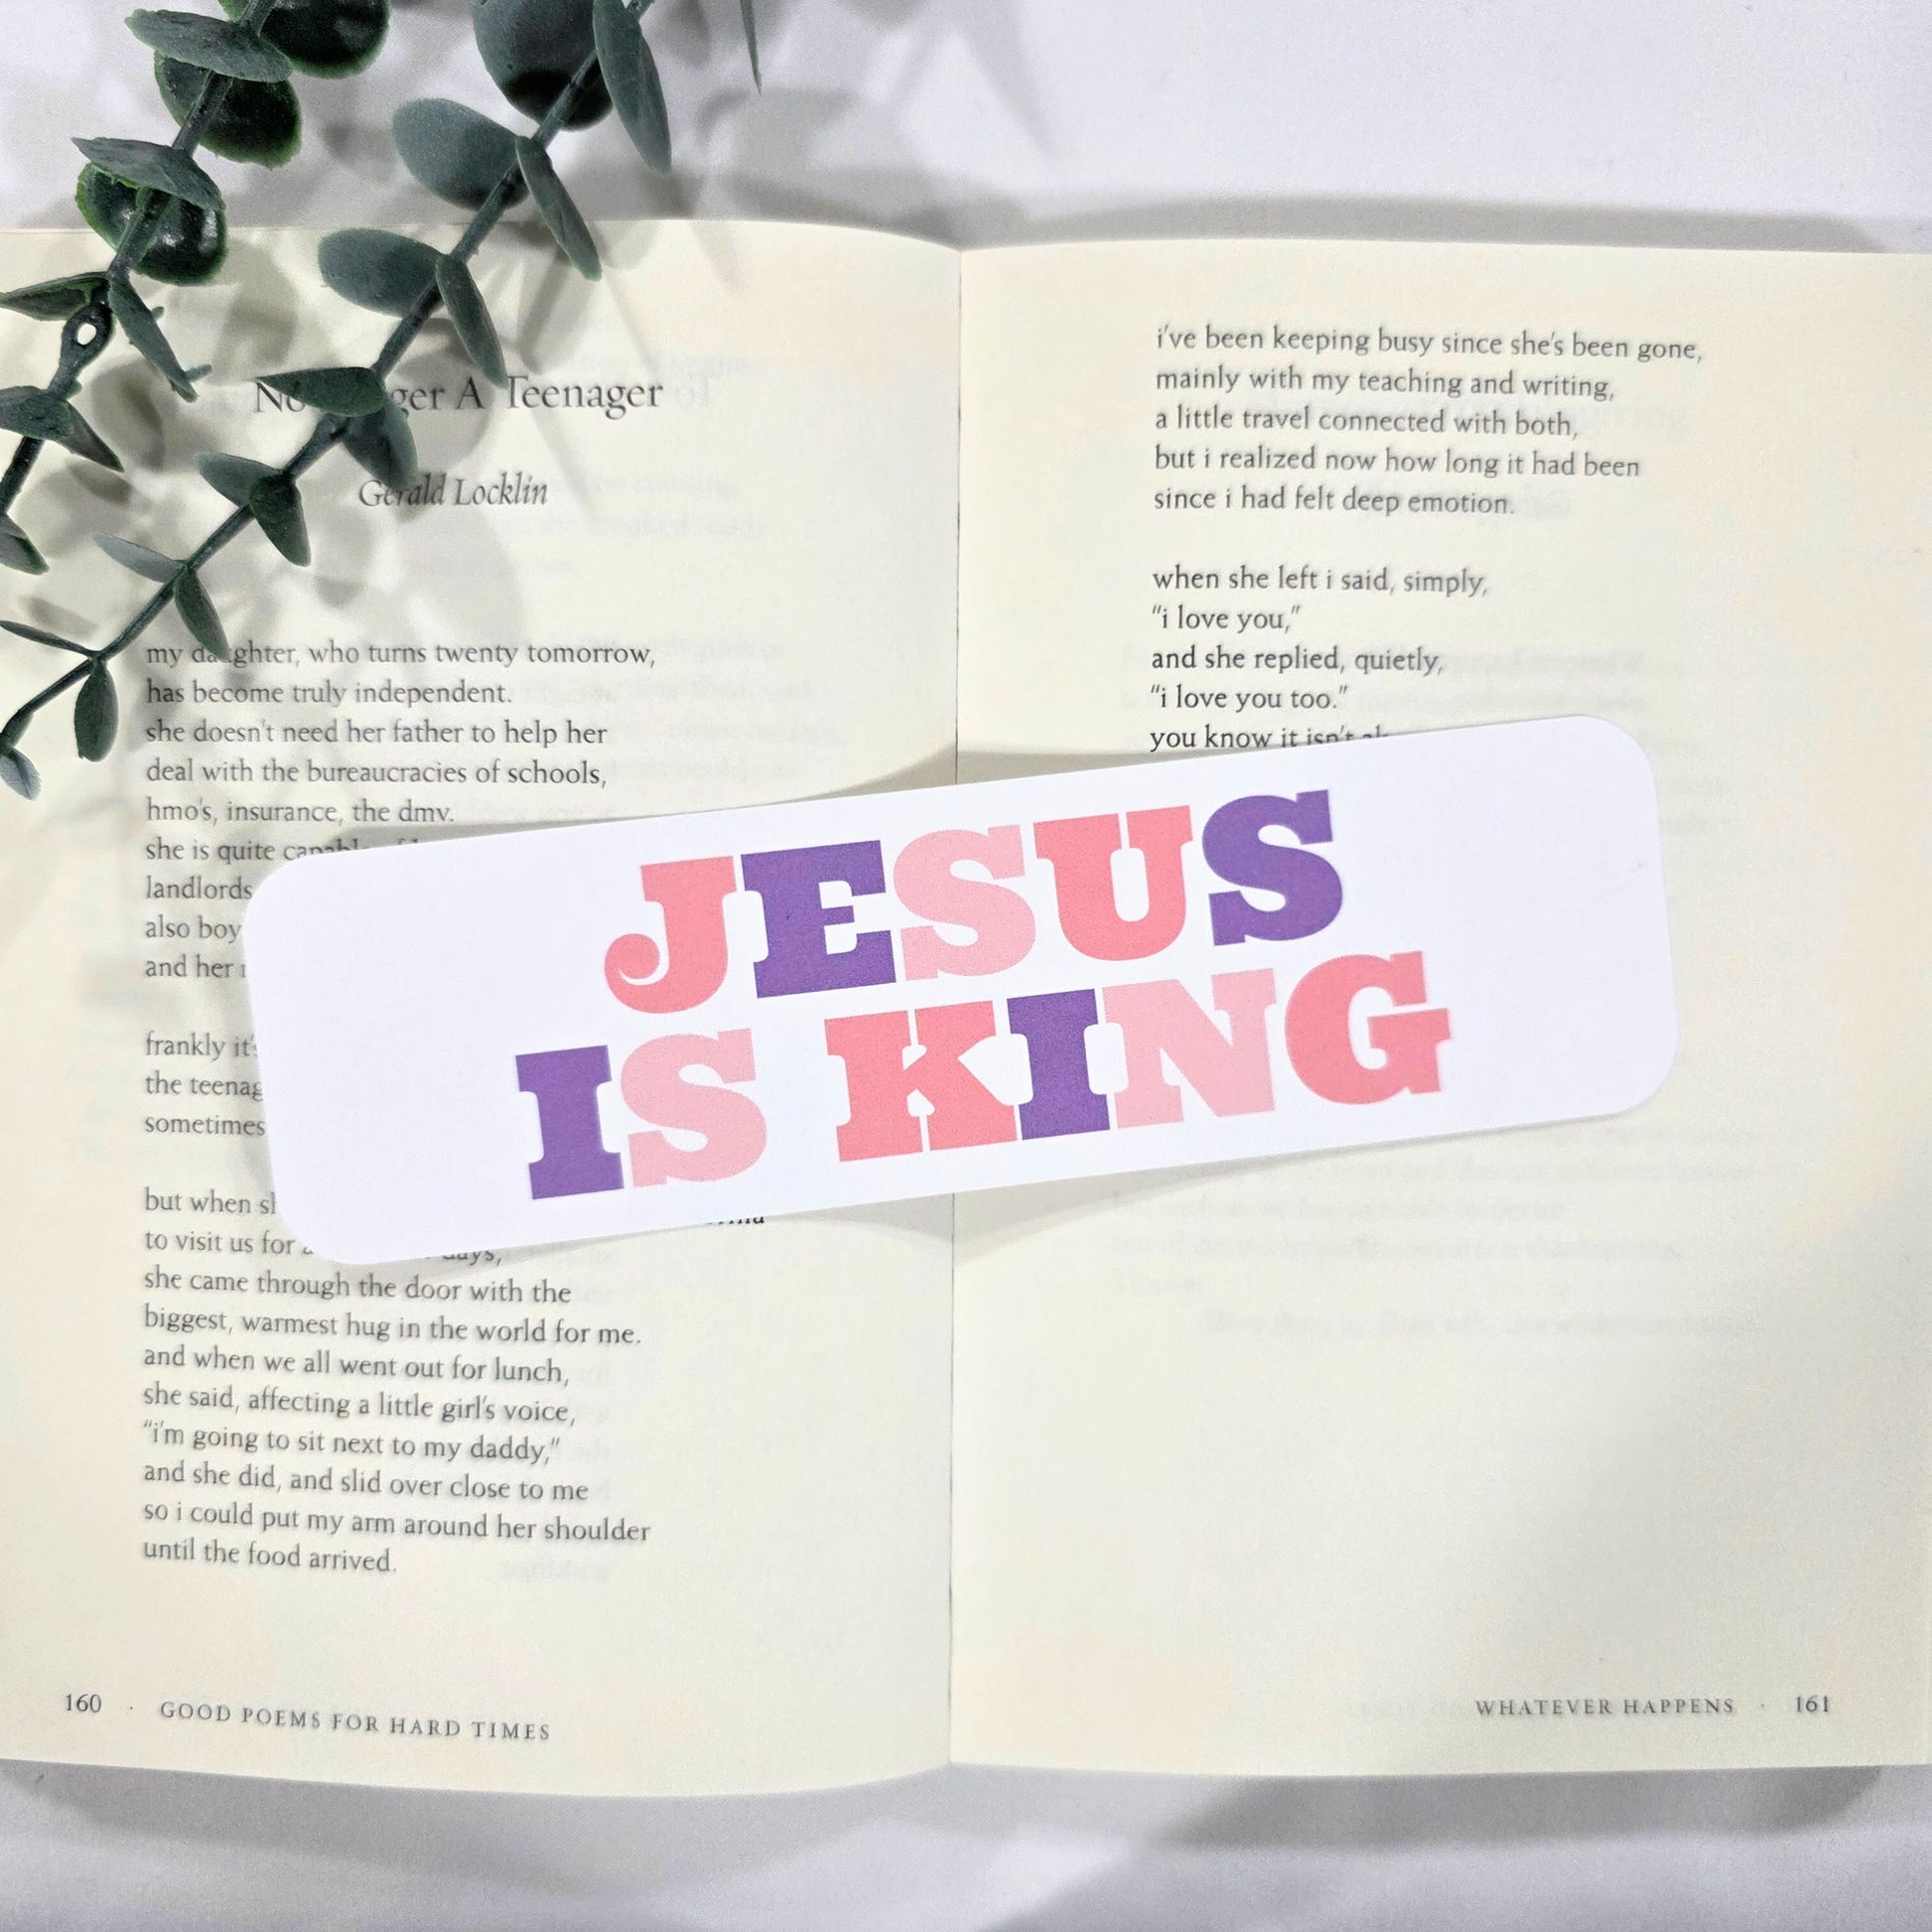 A Teenager
Gerald Locklin
my daughter, who turns twenty tomorrow,
has become truly independent.
she doesn't need her father to help her
deal with the bureaucracies of schools,
hmo's, insurance, the dmv.
she is quite
landlords
also
and her
frankly
the
sometimes
but when
to visit us for days,
she came through the door with the
biggest, warmest hug in the world for me.
and when we all went out for lunch,
she said, affecting a little girl's voice,
"i'm going to sit next to my daddy,"
and she did, and slid over close to me
so i could put my arm around her shoulder
until the food arrived.
160 · GOOD POEMS FOR HARD TIMES
JESUS
IS KING
i've been keeping busy since she's been gone,
mainly with my teaching and writing,
a little travel connected with both,
but i realized now how long it had been
since i had felt deep emotion.
when she left i said, simply,
"i love you,"
and she replied, quietly,
"i love you too."
you know it isn't
WHATEVER HAPPENS · 161